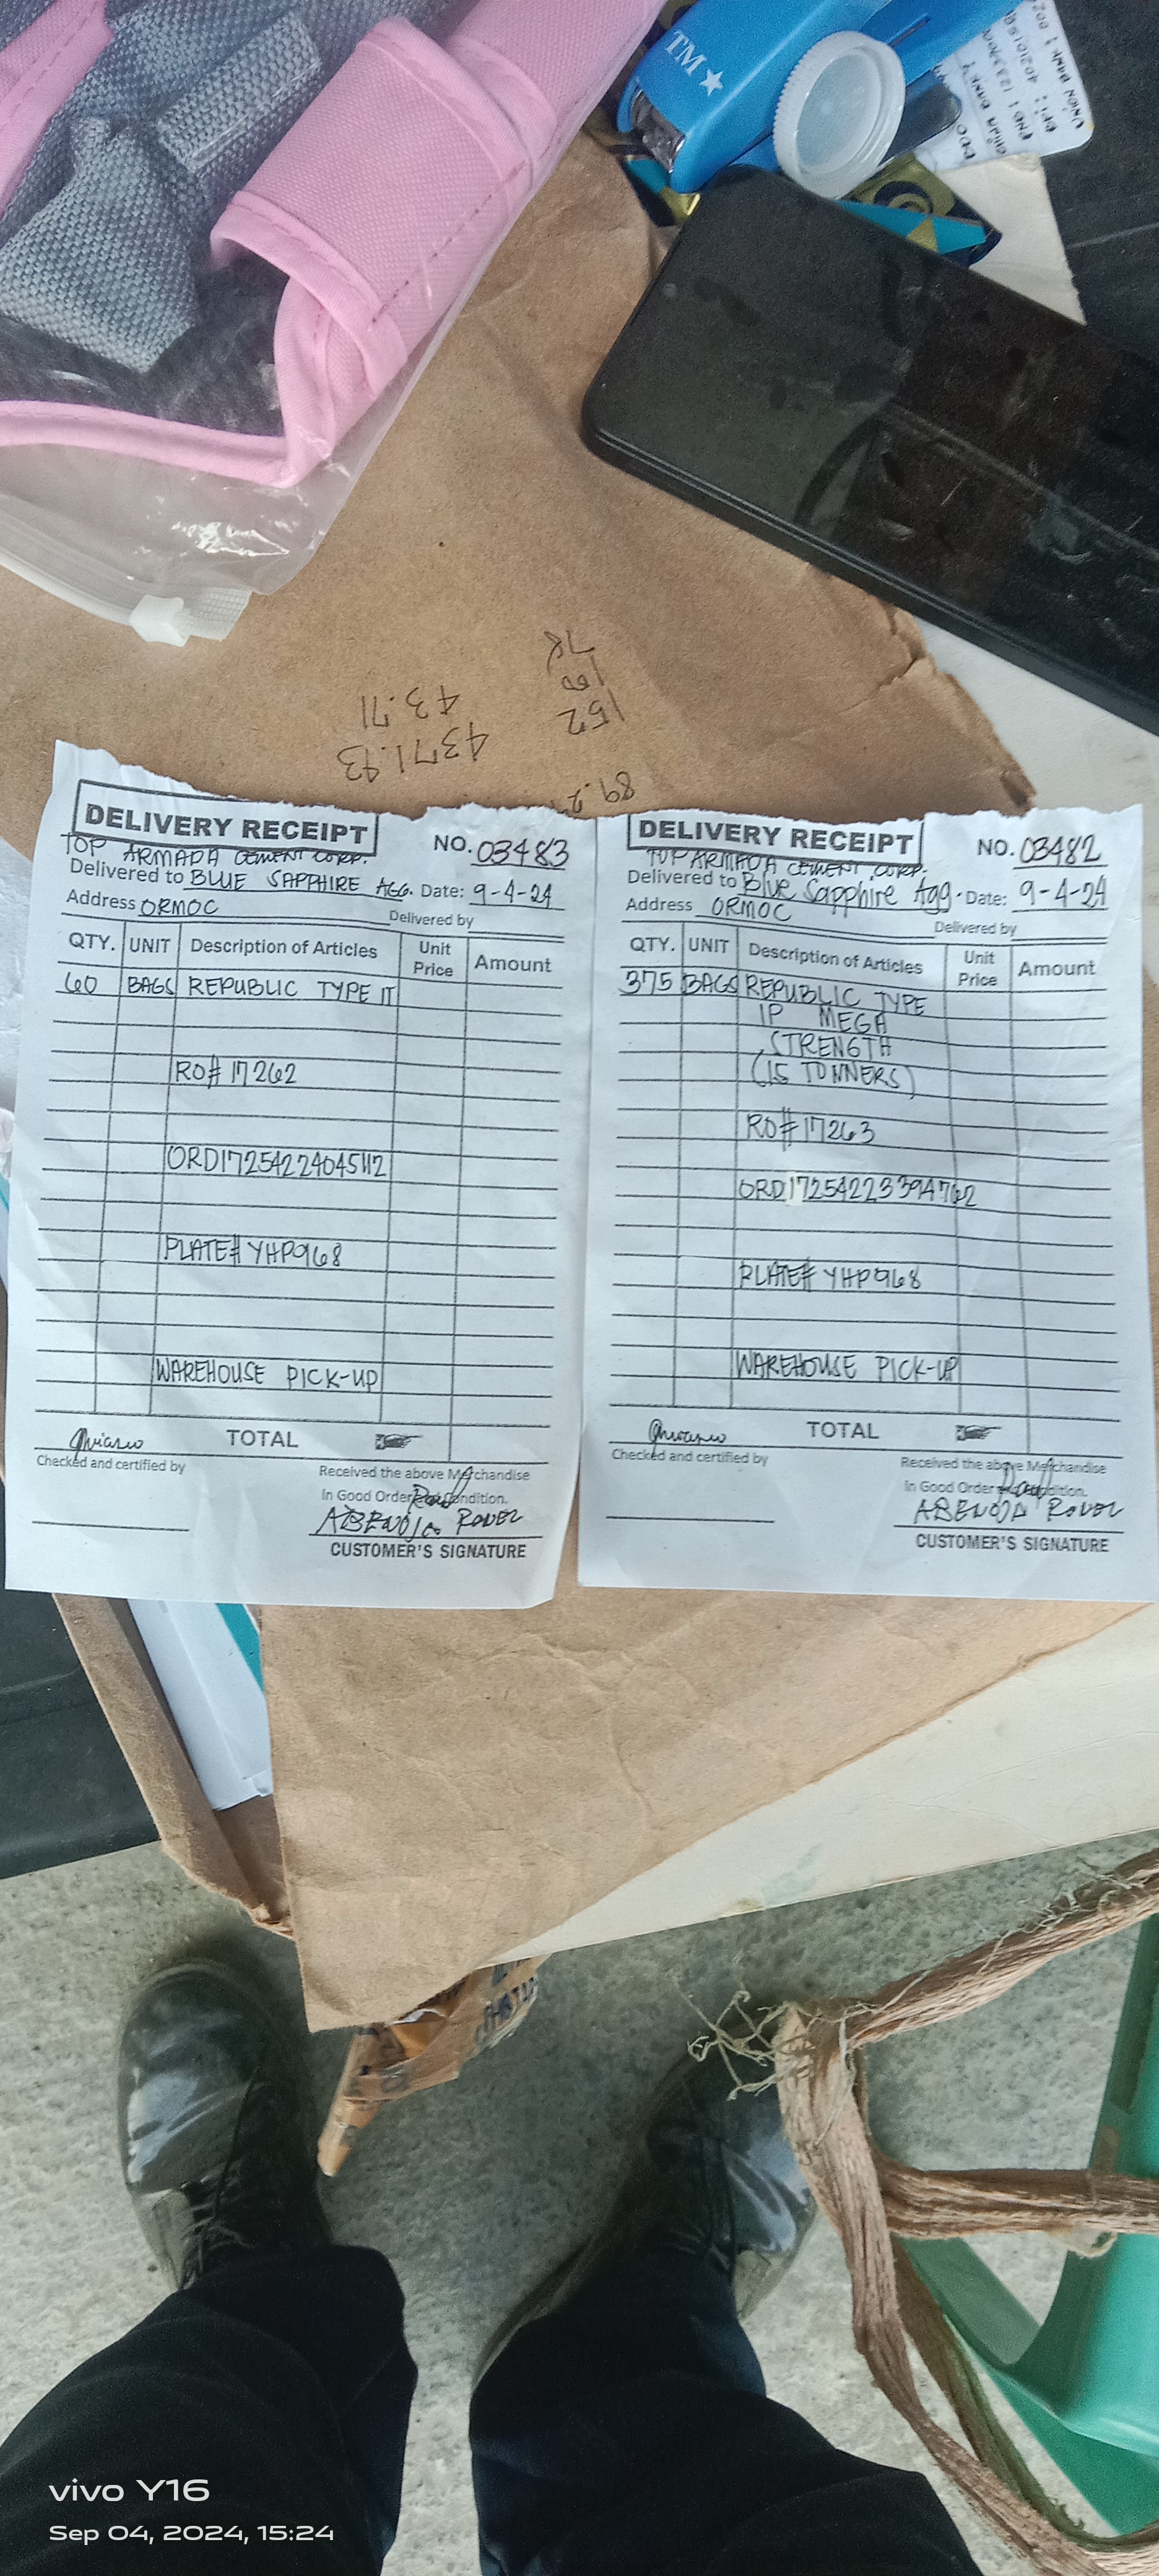 TM
UNION BANK
43.71
4371.93
152
100
DELIVERY RECEIPT
NO. 03483
TOP ARMADA CEMENT CORP.
Delivered to BLUE SAPPHIRE AGG. Date: 9-4-24
Address ORMOC Delivered by
QTY. UNIT Description of Articles Unit Price Amount
60 BAGS REPUBLIC TYPE 1T
RO# 17262
ORD1725422404542
PLATE# YHP968
WAREHOUSE PICK-UP
TOTAL
Checked and certified by
Received the above Merchandise
In Good Order and Condition.
ABENOJA RONEL
CUSTOMER'S SIGNATURE
DELIVERY RECEIPT
NO. 03482
TOP ARMADA CEMENT CORP.
Delivered to Blue Sapphire Agg. Date: 9-4-24
Address ORMOC Delivered by
QTY. UNIT Description of Articles Unit Price Amount
375 BAGS REPUBLIC TYPE
1P MEGA
STRENGTH
(15 TONNERS)
RO# 17263
ORD17254223394762
PLATE# YHP968
WAREHOUSE PICK-UP
TOTAL
Checked and certified by
Received the above Merchandise
In Good Order and Condition.
ABENOJA RONEL
CUSTOMER'S SIGNATURE
vivo Y16
Sep 04, 2024, 15:24